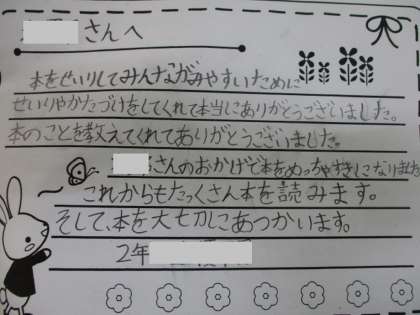 さんへ
本をせいりしてみんながみやすいために
せいりやかたづけをしてくれて本当にありがとうございました。
本のことを教えてくれてありがとうございました。
さんのおかげで本をめっちゃすきになりました
これからもたっくさん本を読みます。
そして、本を大切にあつかいます。
2年